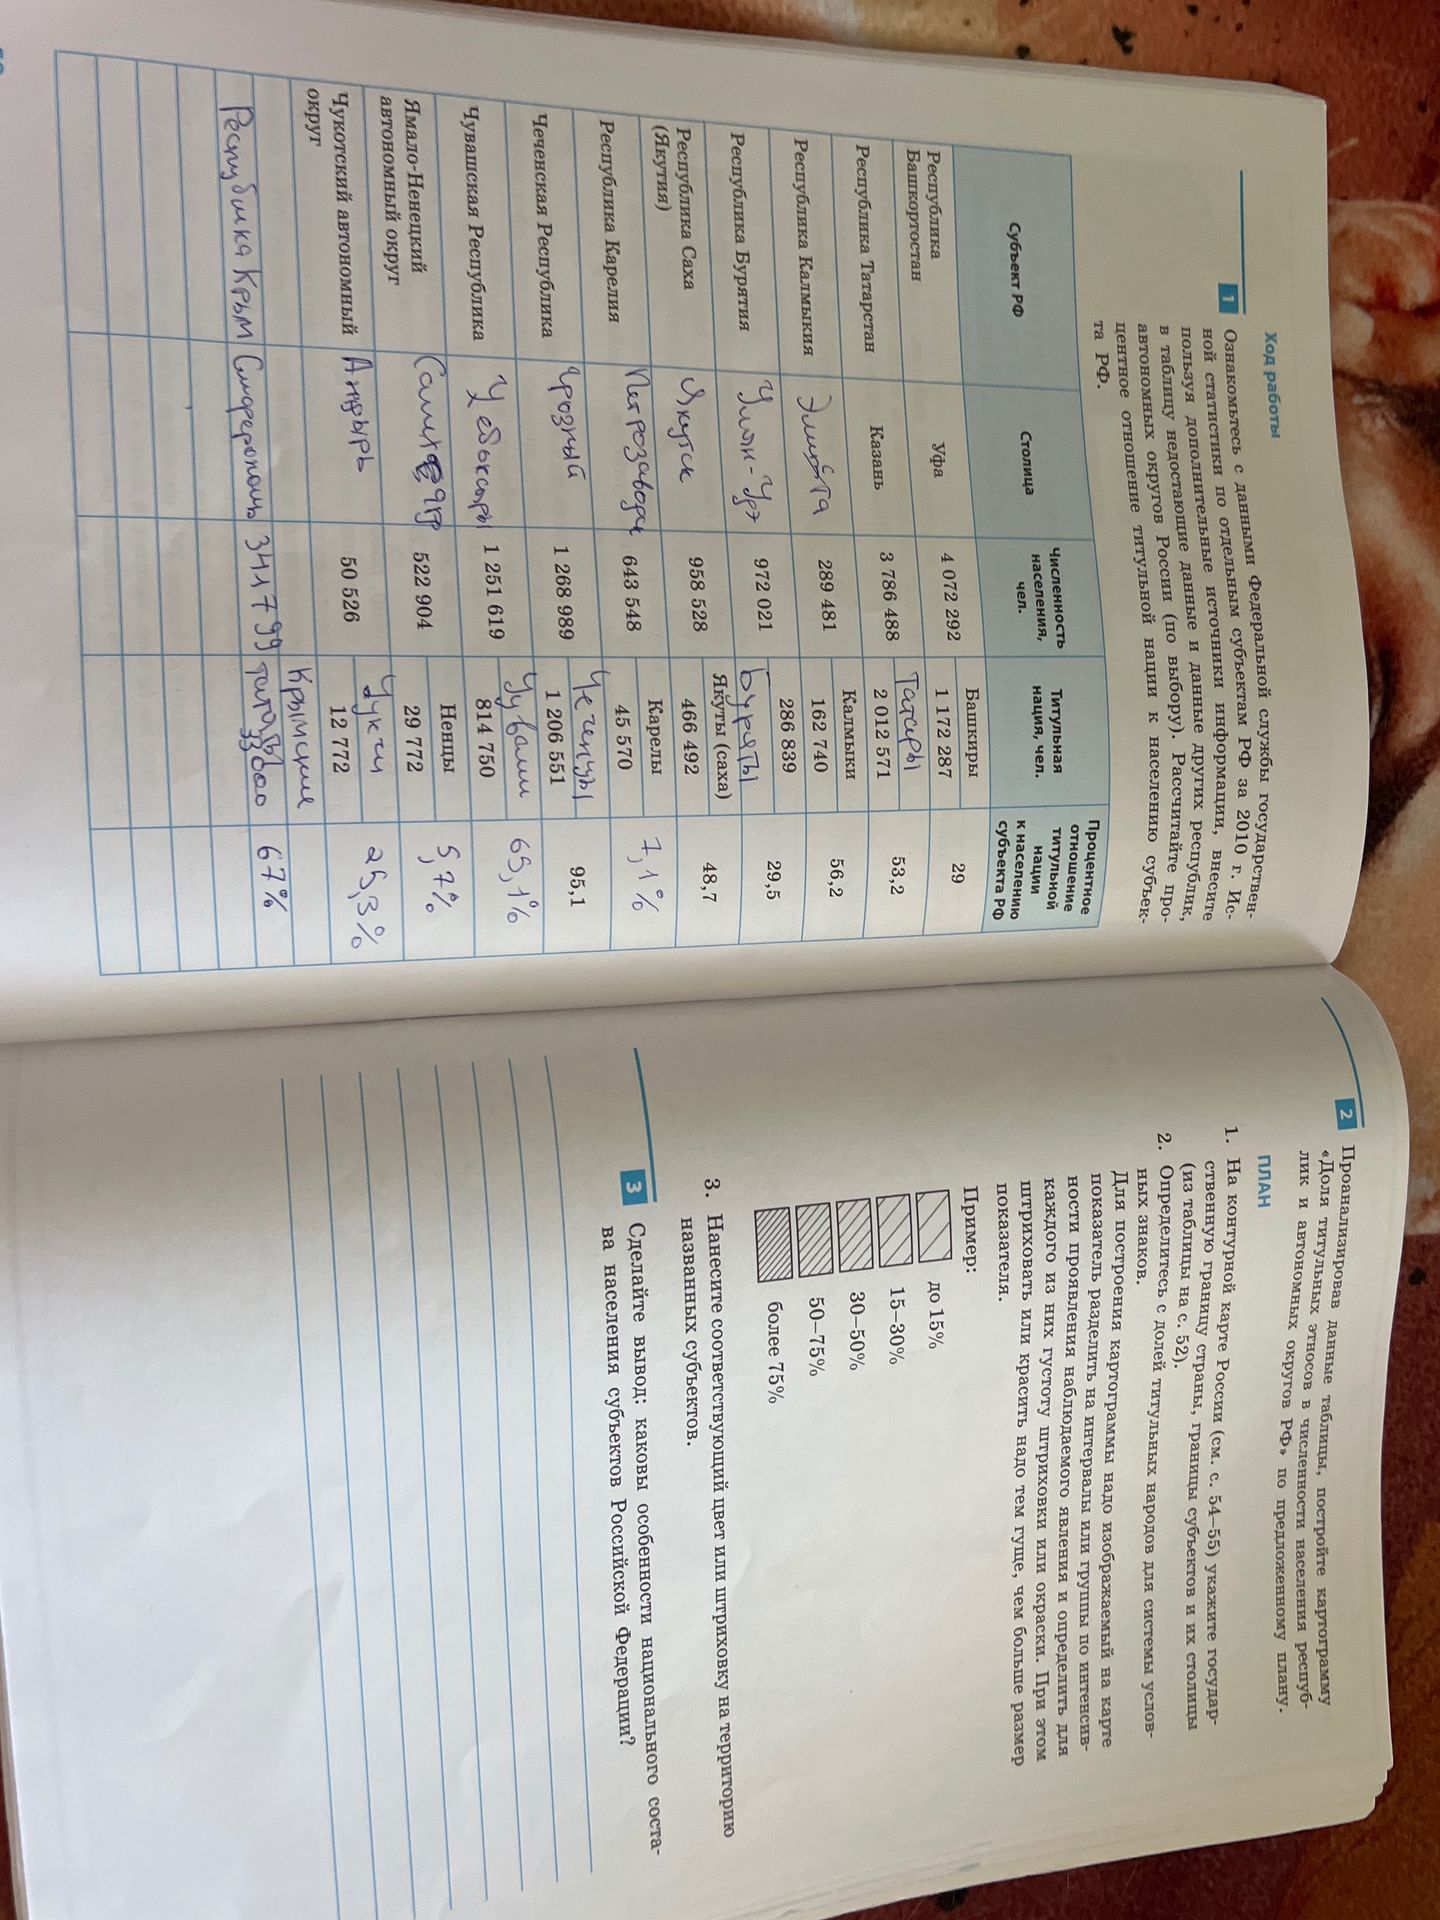 Ход работы
1 Ознакомьтесь с данными Федеральной службы государствен-
ной статистики по отдельным субъектам РФ за 2010 г. Ис-
пользуя дополнительные источники информации, внесите
в таблицу недостающие данные и данные других республик,
автономных округов России (по выбору). Рассчитайте про-
центное отношение титульной нации к населению субъек-
та РФ.
Субъект РФ
Столица
Численность населения, чел.
Титульная нация, чел.
Процентное отношение титульной нации к населению субъекта РФ
Республика Башкортостан
Уфа
4 072 292
Башкиры
1 172 287
29
Республика Татарстан
Казань
3 786 488
Татары
2 012 571
53,2
Республика Калмыкия
Элиста
289 481
Калмыки
162 740
56,2
Республика Бурятия
Улан-Удэ
972 021
286 839
Буряты
29,5
Республика Саха (Якутия)
Якутск
958 528
Якуты (саха)
466 492
48,7
Республика Карелия
Петрозаводск
643 548
Карелы
45 570
7,1%
Чеченская Республика
Грозный
1 268 989
Чеченцы
1 206 551
95,1
Чувашская Республика
Чебоксары
1 251 619
Чуваши
814 750
65,1%
Ямало-Ненецкий автономный округ
522 904
Ненцы
29 772
5,7%
Чукотский автономный округ
50 526
Чукчи
12 772
25,3%
Республика Крым
Симферополь
341799
Крымские
67%
2 Проанализировав данные таблицы, постройте картограмму
«Доля титульных этносов в численности населения респуб-
лик и автономных округов РФ» по предложенному плану.
ПЛАН
1. На контурной карте России (см. с. 54–55) укажите государ-
ственную границу страны, границы субъектов и их столицы
(из таблицы на с. 52).
2. Определитесь с долей титульных народов для системы услов-
ных знаков.
Для построения картограммы надо изображаемый на карте
показатель разделить на интервалы или группы по интенсив-
ности проявления наблюдаемого явления и определить для
каждого из них густоту штриховки или окраски. При этом
штриховать или красить надо тем гуще, чем больше размер
показателя.
Пример:
до 15%
15–30%
30–50%
50–75%
более 75%
3. Нанесите соответствующий цвет или штриховку на территорию
названных субъектов.
3 Сделайте вывод: каковы особенности национального соста-
ва населения субъектов Российской Федерации?